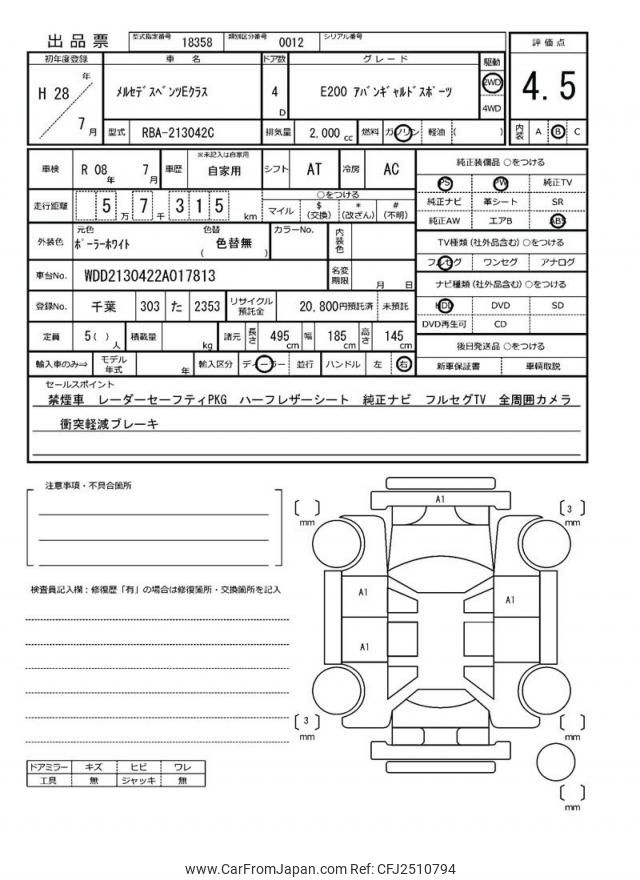 出品票 型式指定番号 18358 類別区分番号 0012 シリアル番号
初年度登録 車 名 ドア数 グレード 駆動 評価点
H 28 年 7 月 メルセデスベンツEクラス 4 D E200 アバンギャルドスポーツ 2WD 4WD 4.5
型式 RBA-213042C 排気量 2,000 cc 燃料 ガソリン 軽油 ( ) 内装 A B C
車検 R 08 年 7 月 車歴 ※未記入は自家用 自家用 シフト AT 冷房 AC 純正装備品 ○をつける
PS PW 純正TV
走行距離 5 万 7 千 3 1 5 km ○をつける
マイル $ (交換) * (改ざん) # (不明)
純正ナビ 革シート SR
純正AW エアB ABS
外装色 元色 ポーラーホワイト 色替 ( 色替無 ) カラーNo. 内装色
TV種類 (社外品含む) ○をつける
フルセグ ワンセグ アナログ
車台No. WDD2130422A017813 名変期限 月 日
ナビ種類 (社外品含む) ○をつける
HDD DVD SD
DVD再生可 CD
登録No. 千葉 303 た 2353 リサイクル預託金 20,800円預託済 未預託
定員 5( ) 人 積載量 kg 諸元 長さ 495 cm 幅 185 cm 高さ 145 cm
後日発送品 ○をつける
新車保証書 車輌取説
輸入車のみ⇒ モデル年式 年 輸入区分 ディーラー 並行 ハンドル 左 右
セールスポイント
禁煙車 レーダーセーフティPKG ハーフレザーシート 純正ナビ フルセグTV 全周囲カメラ
衝突軽減ブレーキ
注意事項・不具合箇所
検査員記入欄：修復歴「有」の場合は修復箇所・交換箇所を記入
A1
[ ] mm
[ 3 ] mm
A1 A1
A1
[ 3 ] mm
[ ] mm
[ ] mm
ドアミラー キズ ヒビ ワレ
工具 無 ジャッキ 無
www.CarFromJapan.com Ref: CFJ2510794